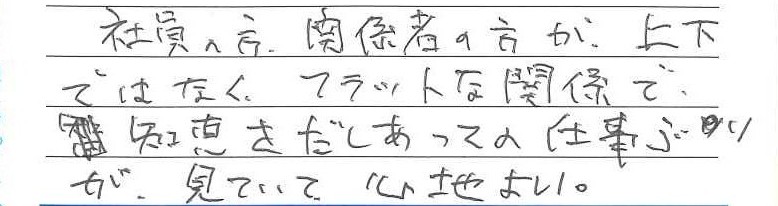 社員の方、関係者の方が、上下
ではなく、フラットな関係で、
知恵をだしあっての仕事ぶり
が、見ていて心地よい。